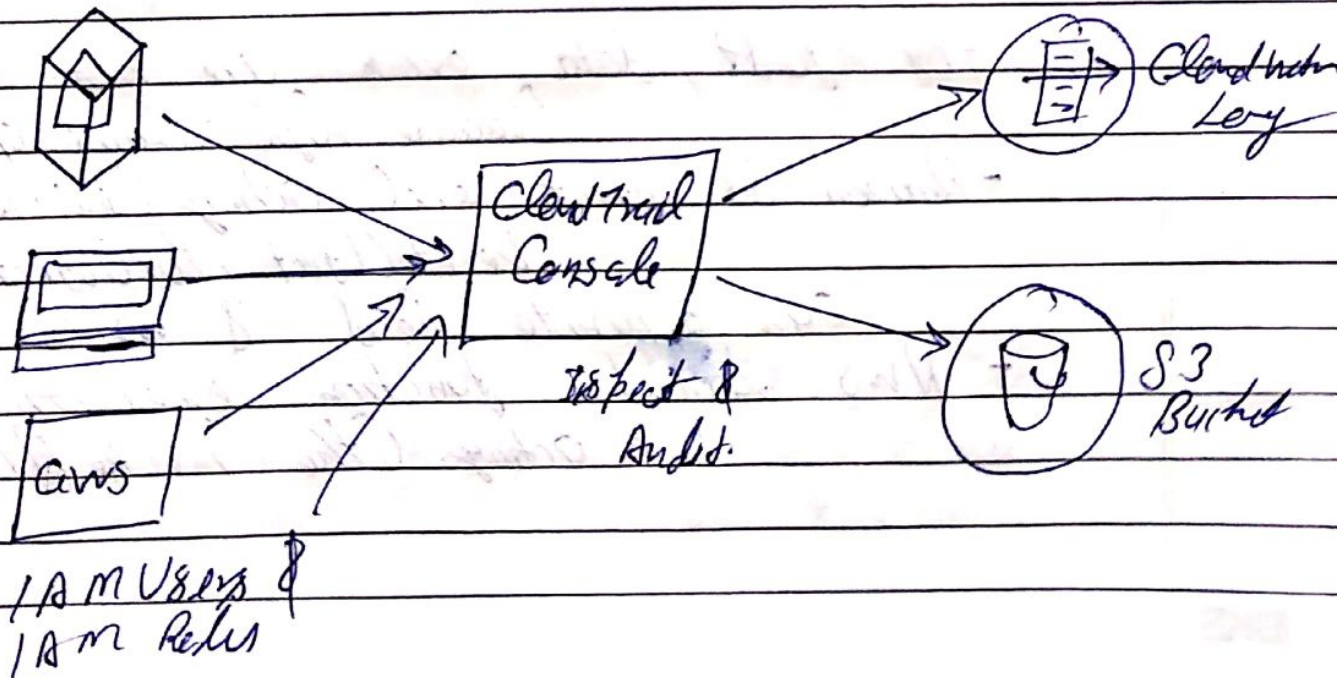 CloudWatch
Logs
CloudTrail
Console
Inspect &
Audit.
S3
Bucket
aws
IAM Users &
IAM Roles